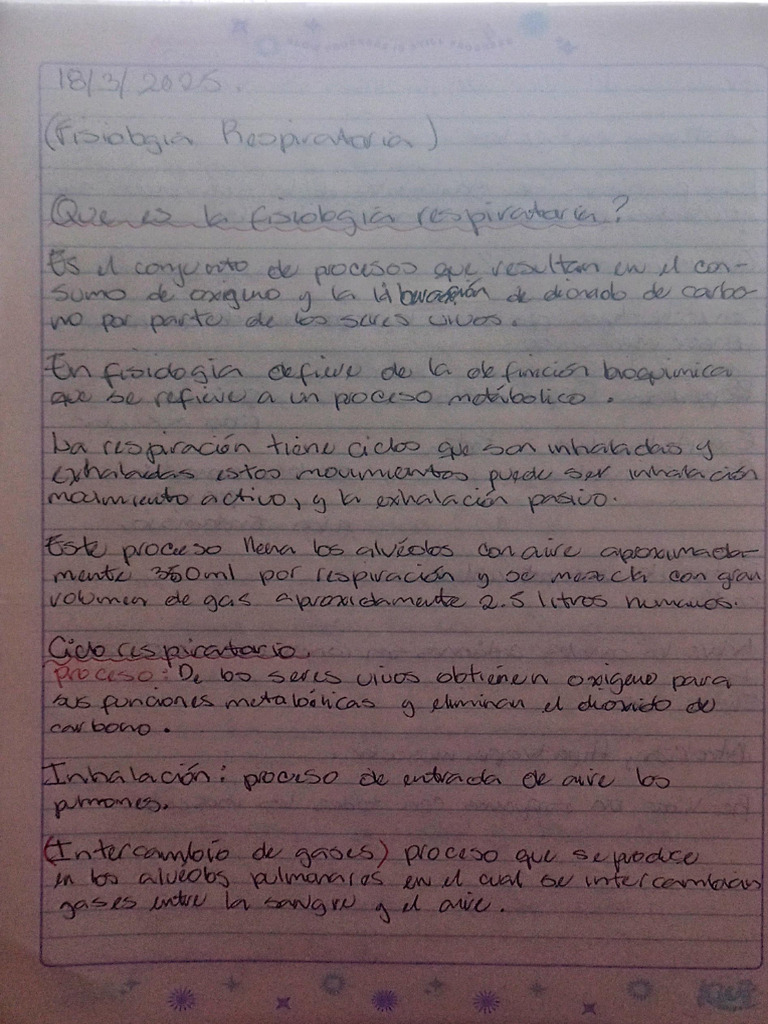 18/3/2025.
(Fisiología Respiratoria)
Que es la fisiología respiratoria?
Es el conjunto de procesos que resultan en el con-
sumo de oxígeno y la liberación de dioxido de carbo-
no por parte de los seres vivos.
En fisiología defiere de la definición bioquimica
que se refiere a un proceso metábolico.
La respiración tiene ciclos que son inhaladas y
exhaladas estos movimientos puede ser inhalación
movimiento activo, y la exhalación pasivo.
Este proceso llena los alvéolos con aire aproximada-
mente 350ml por respiración y se mezcla con gran
volumen de gas aproxidamente 2.5 litros humanos.
Ciclo respiratorio.
Proceso: De los seres vivos obtienen oxigeno para
sus funciones metabólicas y eliminan el dioxido de
carbono.
Inhalación: proceso de entrada de aire los
pulmones.
(Intercambio de gases) proceso que se produce
en los alveolos pulmonares en el cual se intercambian
gases entre la sangre y el aire.